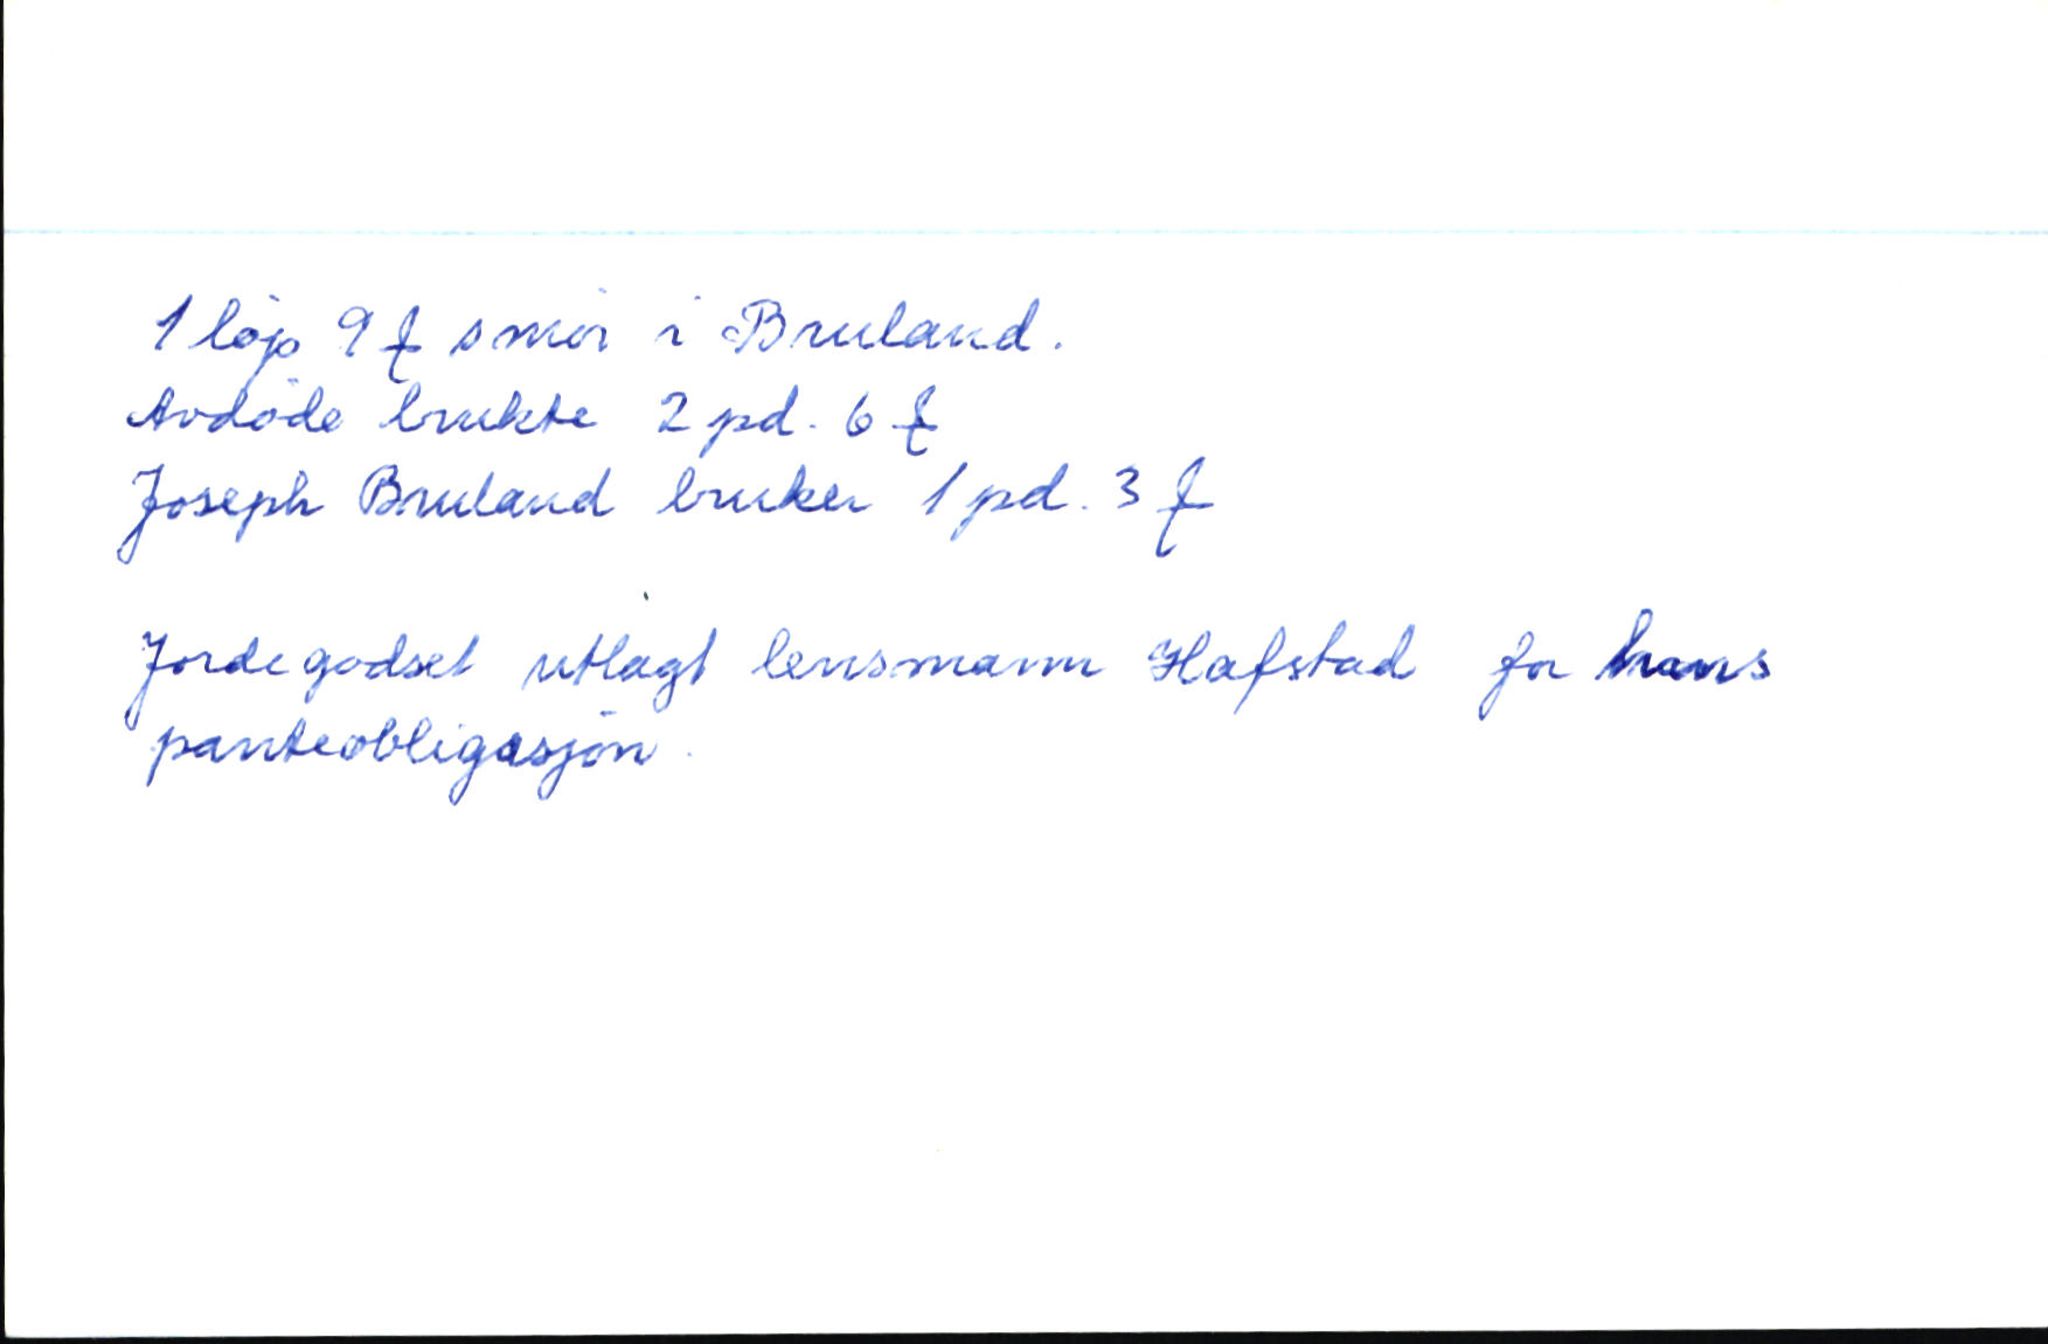 1 løp 9 ₤ smör i Bruland.
Avdöde brukte 2 pd. 6 ₤
Joseph Bruland bruker 1 pd. 3 ₤
Jordegodset utlagt lensmann Hafstad for hans
panteobligasjon.